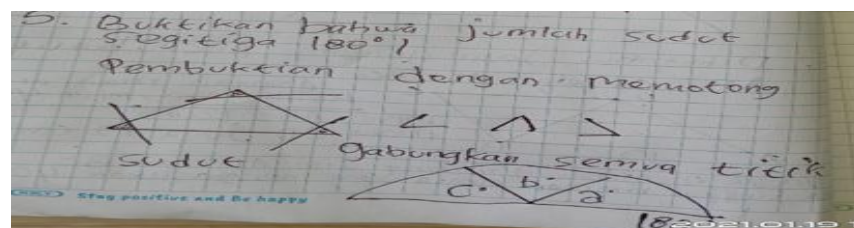 5. Buktikan bahwa jumlah sudut
segitiga 180°!
Pembuktian dengan memotong
sudut gabungkan semua titik
c. b. a.
Stay positive and Be happy
18
2021.01.19 1